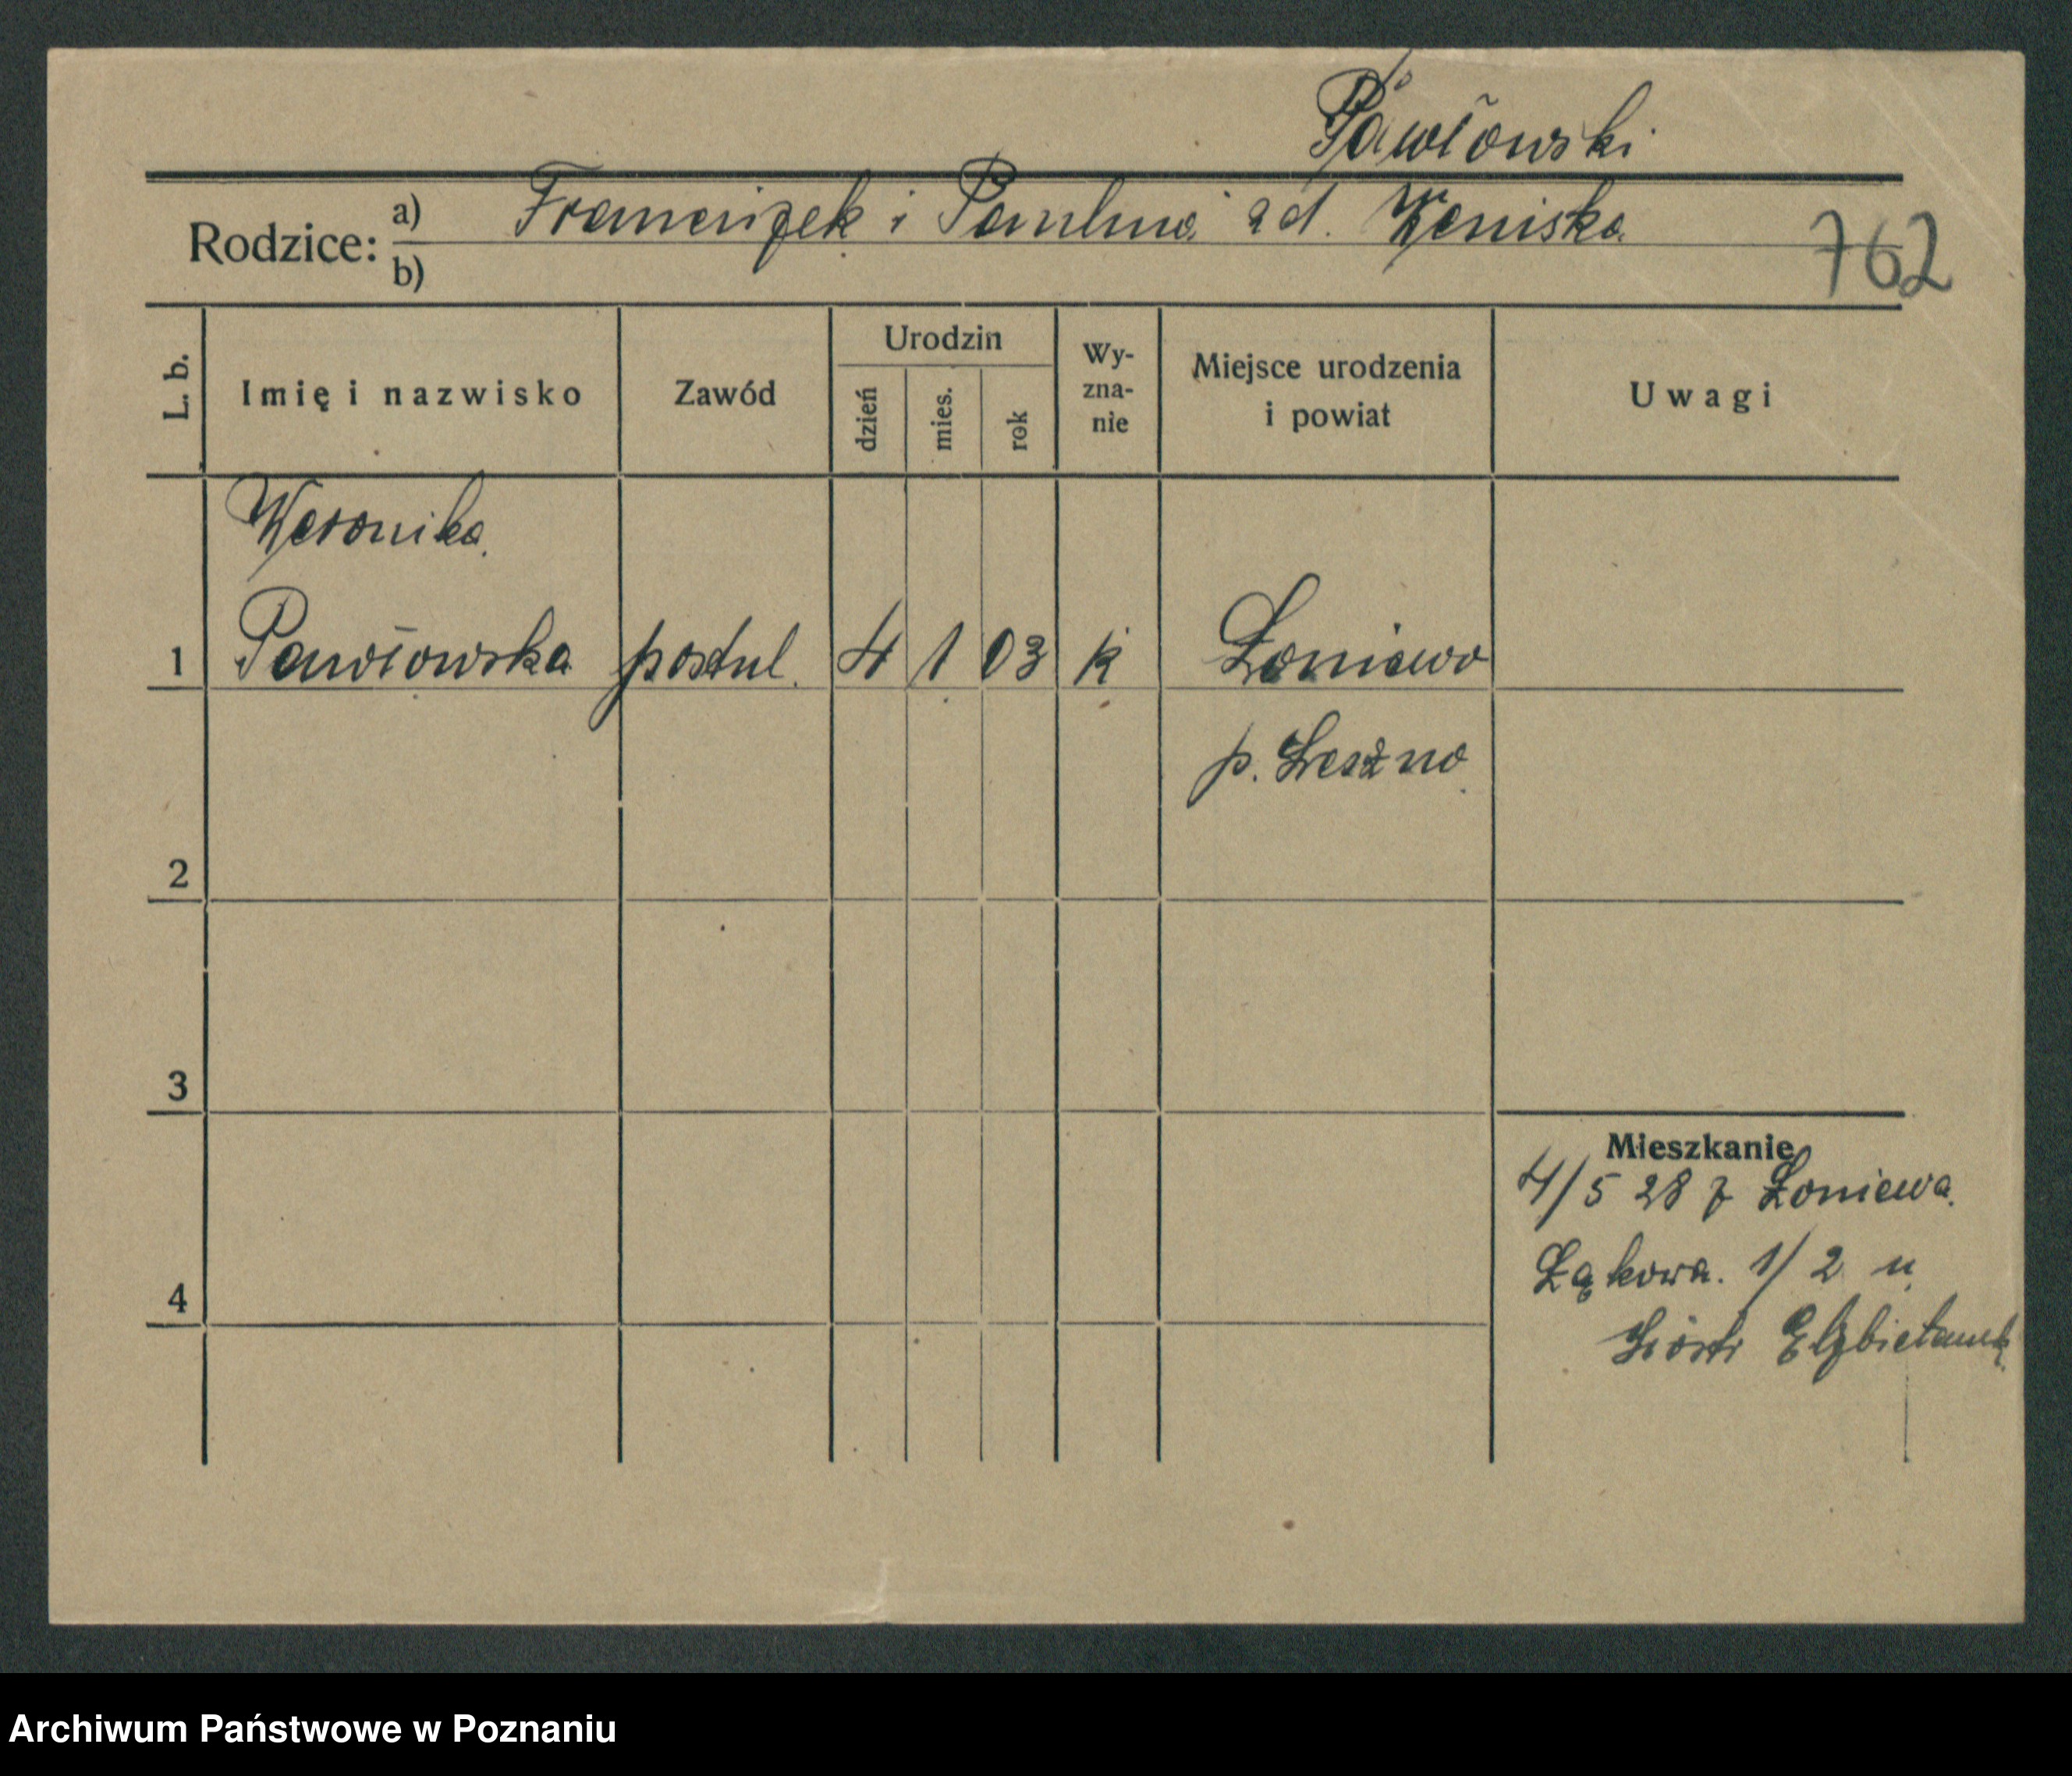 Pawłowski
Rodzice: a) Franciszek i Paulina zd. Weniska
b)
762
L. b.
Imię i nazwisko
Zawód
Urodzin
dzień
mies.
rok
Wy-
zna-
nie
Miejsce urodzenia
i powiat
Uwagi
Weronika
1 Pawłowska postul. 4 1 03 k Łoniewo
p. Leszno
2
3
4
Mieszkanie
4/5 28 z Łoniewa.
Łąkowa. 1/2 u
Sióstr Elżbietanek
Archiwum Państwowe w Poznaniu